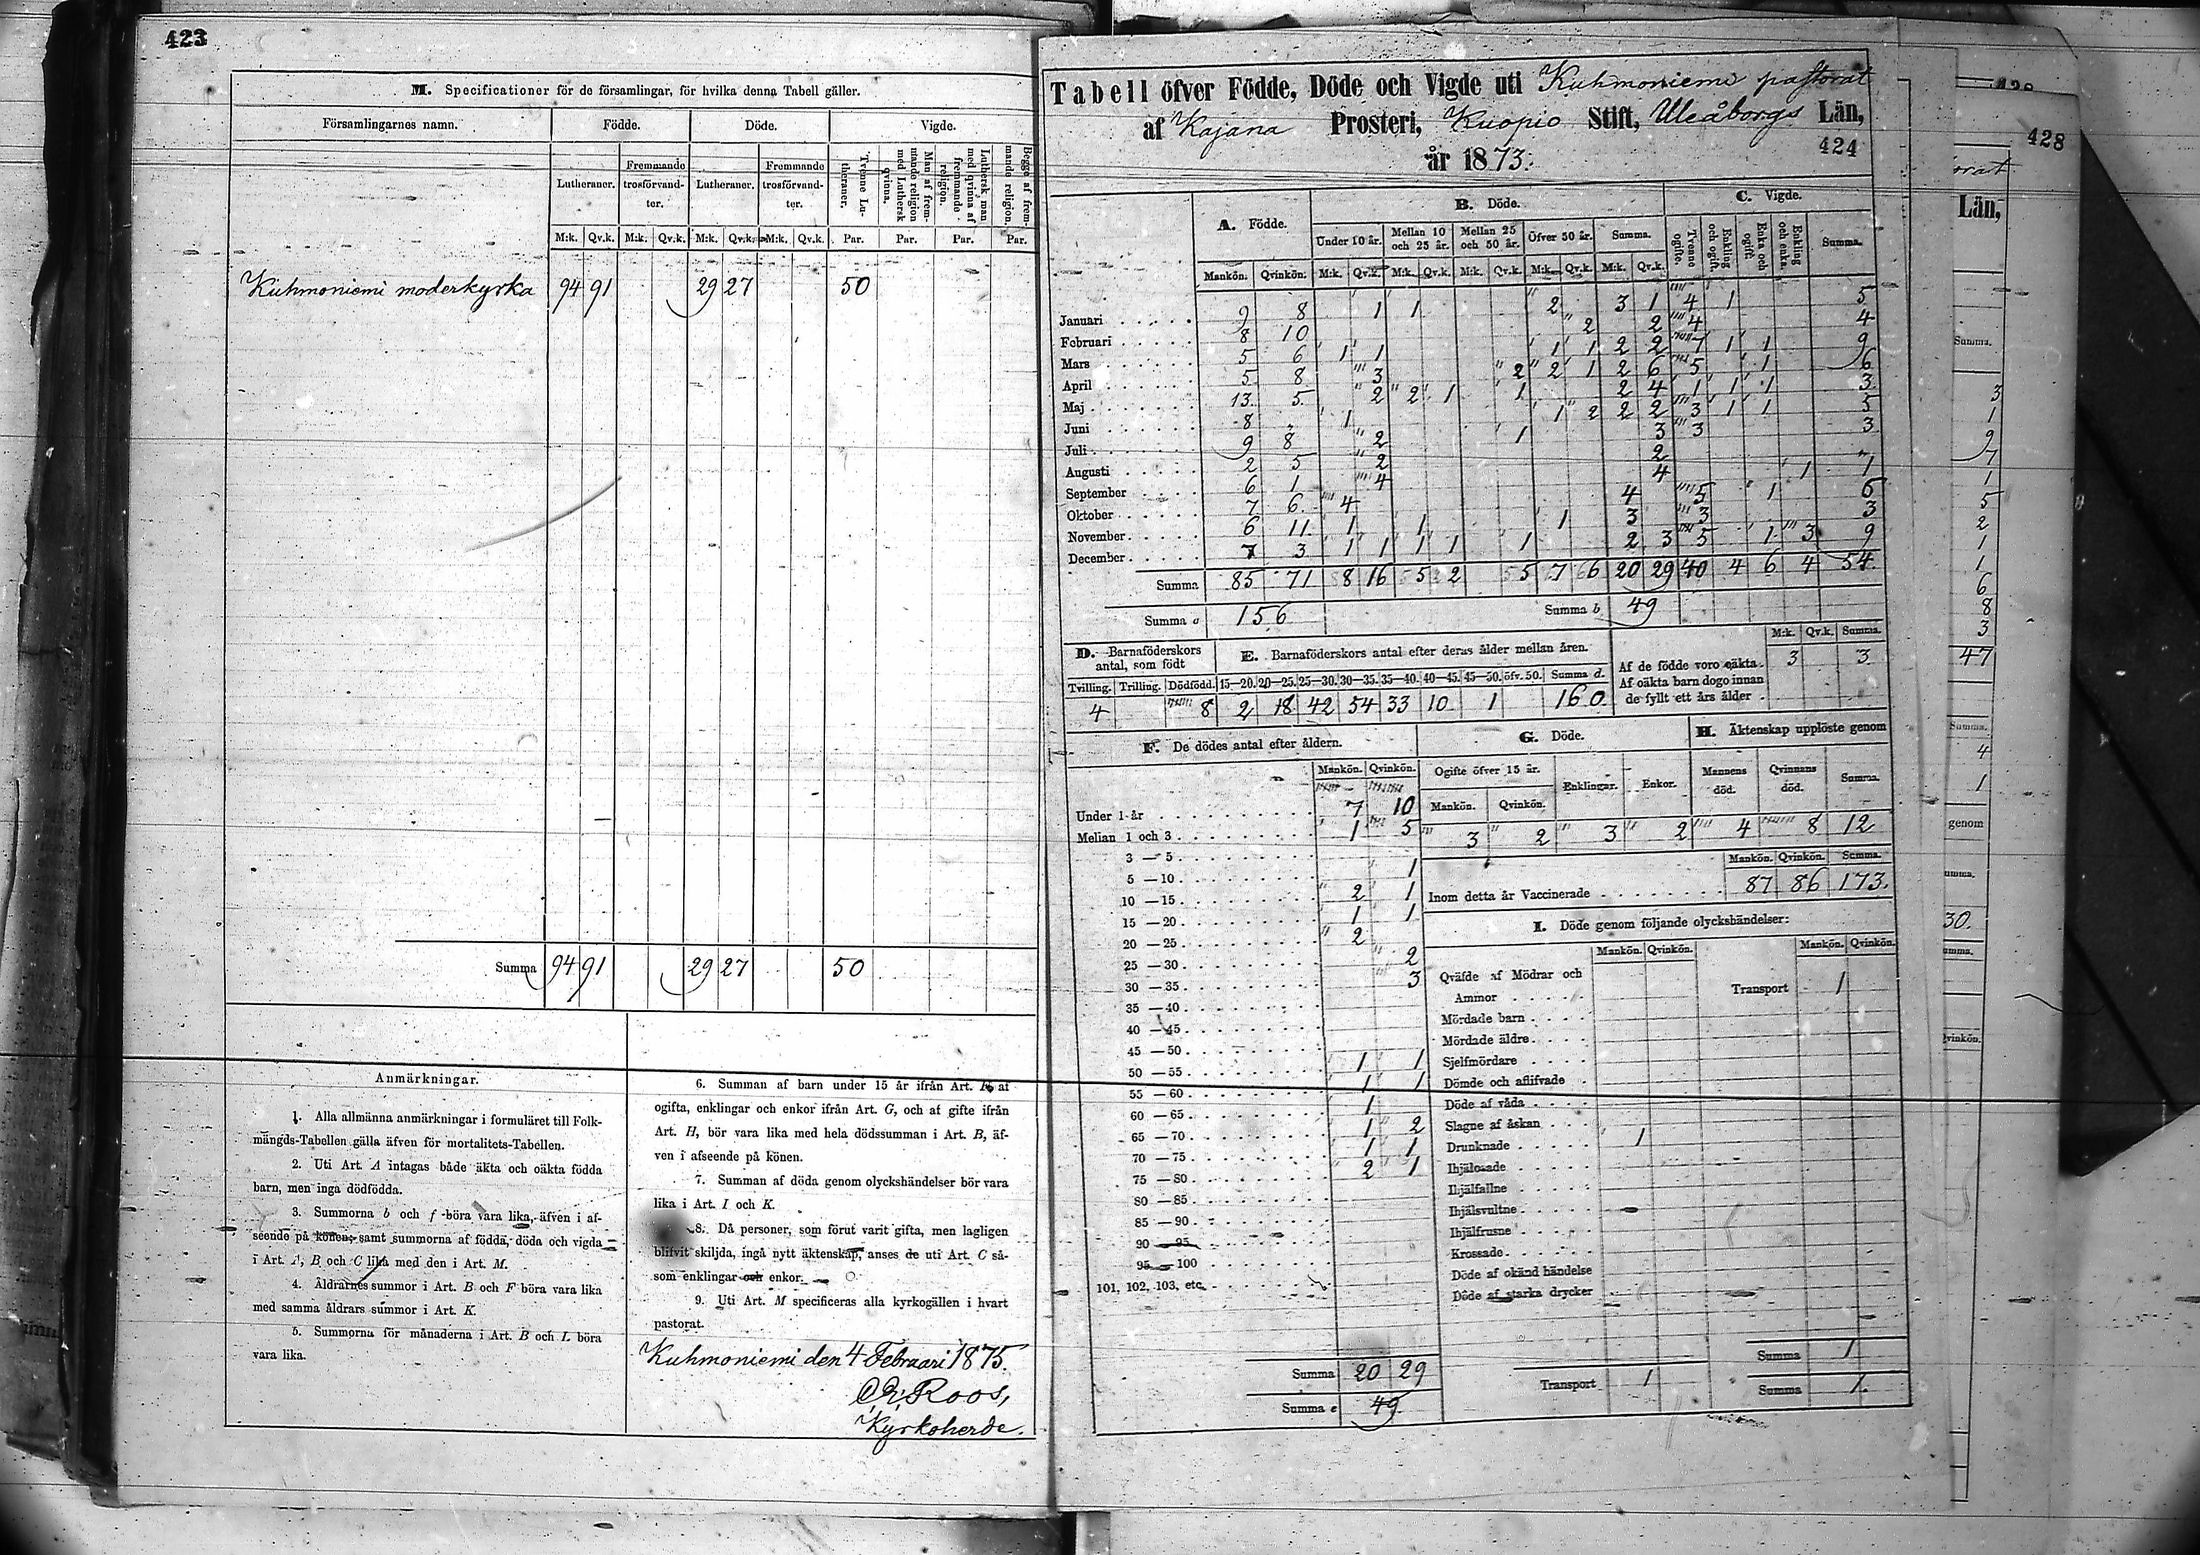 423
M. Specificationer för de församlingar, för hvilka denna Tabell gäller.
Församlingarnes namn. Födde. Döde. Vigde.
Lutheraner. Fremmande trosförvandter. Lutheraner. Fremmande trosförvandter. Tvenne Lutheraner. Man af fremmande religion med Luthersk qvinna. Luthersk man med qvinna af fremmande religion. Begge af fremmande religion.
M:k. Qv.k. M:k. Qv.k. M:k. Qv.k. M:k. Qv.k. Par. Par. Par. Par.
Kuhmoniemi moderkyrka 94 91 29 27 50
Summa 94 91 29 27 50
Anmärkningar.
1. Alla allmänna anmärkningar i formuläret till Folk-
mängds-Tabellen gälla äfven för mortalitets-Tabellen.
2. Uti Art. A intagas både äkta och oäkta födda
barn, men inga dödfödda.
3. Summorna b och f böra vara lika, äfven i af-
seende på könen, samt summorna af födda, döda och vigda
i Art. A, B och C lika med den i Art. M.
4. Åldrarnes summor i Art. B och F böra vara lika
med samma åldrars summor i Art. K.
5. Summorna för månaderna i Art. B och L böra
vara lika.
6. Summan af barn under 15 år ifrån Art. F, af
ogifta, enklingar och enkor ifrån Art. G, och af gifte ifrån
Art. H, bör vara lika med hela dödssumman i Art. B, äf-
ven i afseende på könen.
7. Summan af döda genom olyckshändelser bör vara
lika i Art. I och K.
8. Då personer, som förut varit gifta, men lagligen
blifvit skiljda, ingå nytt äktenskap, anses de uti Art. C så-
som enklingar och enkor.
9. Uti Art. M specificeras alla kyrkogällen i hvart
pastorat.
Kuhmoniemi den 4 Februari 1875.
Roos,
Kyrkoherde.
Tabell öfver Födde, Döde och Vigde uti Kuhmoniemi pastorat
af Kajana Prosteri, Kuopio Stift, Uleåborgs Län,
år 1873.
424
A. Födde. B. Döde. C. Vigde.
Under 10 år. Mellan 10 och 25 år. Mellan 25 och 50 år. Öfver 50 år. Summa. Tvenne ogifte. Enkling och ogift. Enka och ogift. Enkling och enka. Summa.
Mankön. Qvinkön. M:k. Qv.k. M:k. Qv.k. M:k. Qv.k. M:k. Qv.k. M:k. Qv.k.
Januari 9 8 1 1 2 3 1 4 1 5
Februari 8 10 2 2 4 4
Mars 5 6 1 1 1 1 2 2 7 1 1 9
April 5 8 3 2 2 1 2 6 5 1 6
Maj 13 5 2 2 1 1 2 4 1 1 1 3
Juni 8 1 1 2 2 2 3 1 1 5
Juli 9 8 2 1 3 3 3
Augusti 2 5 2 2
September 6 1 4 4 1 1
Oktober 7 6 4 4 5 1 6
November 6 11 1 1 1 3 3 3
December 7 3 1 1 1 1 1 2 3 5 1 3 9
Summa 85 71 8 16 5 2 5 7 6 20 29 40 4 6 4 54
Summa a 156 Summa b 49
D. Barnaföderskors antal, som födt
Tvilling. Trilling. Dödfödd.
4 8
E. Barnaföderskors antal efter deras ålder mellan åren.
15—20. 20—25. 25—30. 30—35. 35—40. 40—45. 45—50. öfv. 50. Summa d.
2 18 42 54 33 10 1 160
M:k. Qv.k. Summa.
Af de födde voro oäkta 3 3
Af oäkta barn dogo innan
de fyllt ett års ålder
F. De dödes antal efter åldern.
Mankön. Qvinkön.
Under 1 år 7 10
Mellan 1 och 3 1 5
3—5
5—10 1
10—15 2 1
15—20 1 1
20—25 2
25—30 2
30—35 3
35—40
40—45
45—50
50—55 1 1
55—60 1 1
60—65 1
65—70 1 2
70—75 1 1
75—80 2 1
80—85
85—90
90—95
95—100
101, 102, 103, etc.
Summa 20 29
Summa e 49
G. Döde.
Ogifte öfver 15 år. Enklingar. Enkor.
Mankön. Qvinkön.
3 2 3 2
H. Äktenskap upplöste genom
Mannens död. Qvinnans död. Summa.
4 8 12
Mankön. Qvinkön. Summa.
Inom detta år Vaccinerade 87 86 173.
I. Döde genom följande olyckshändelser:
Mankön. Qvinkön. Mankön. Qvinkön.
Qväfde af Mödrar och
Ammor
Transport 1
Mördade barn
Mördade äldre
Sjelfmördare
Dömde och aflifvade
Döde af våda
Slagne af åskan
Drunknade 1
Ihjälosade
Ihjälfallne
Ihjälsvultne
Ihjälfrusne
Krossade
Döde af okänd händelse
Döde af starka drycker
Summa 1
Transport 1 Summa 1.
428
Län,
Summa.
3
1
9
7
1
5
2
1
1
6
8
3
47
Summa.
4
1
genom
30.